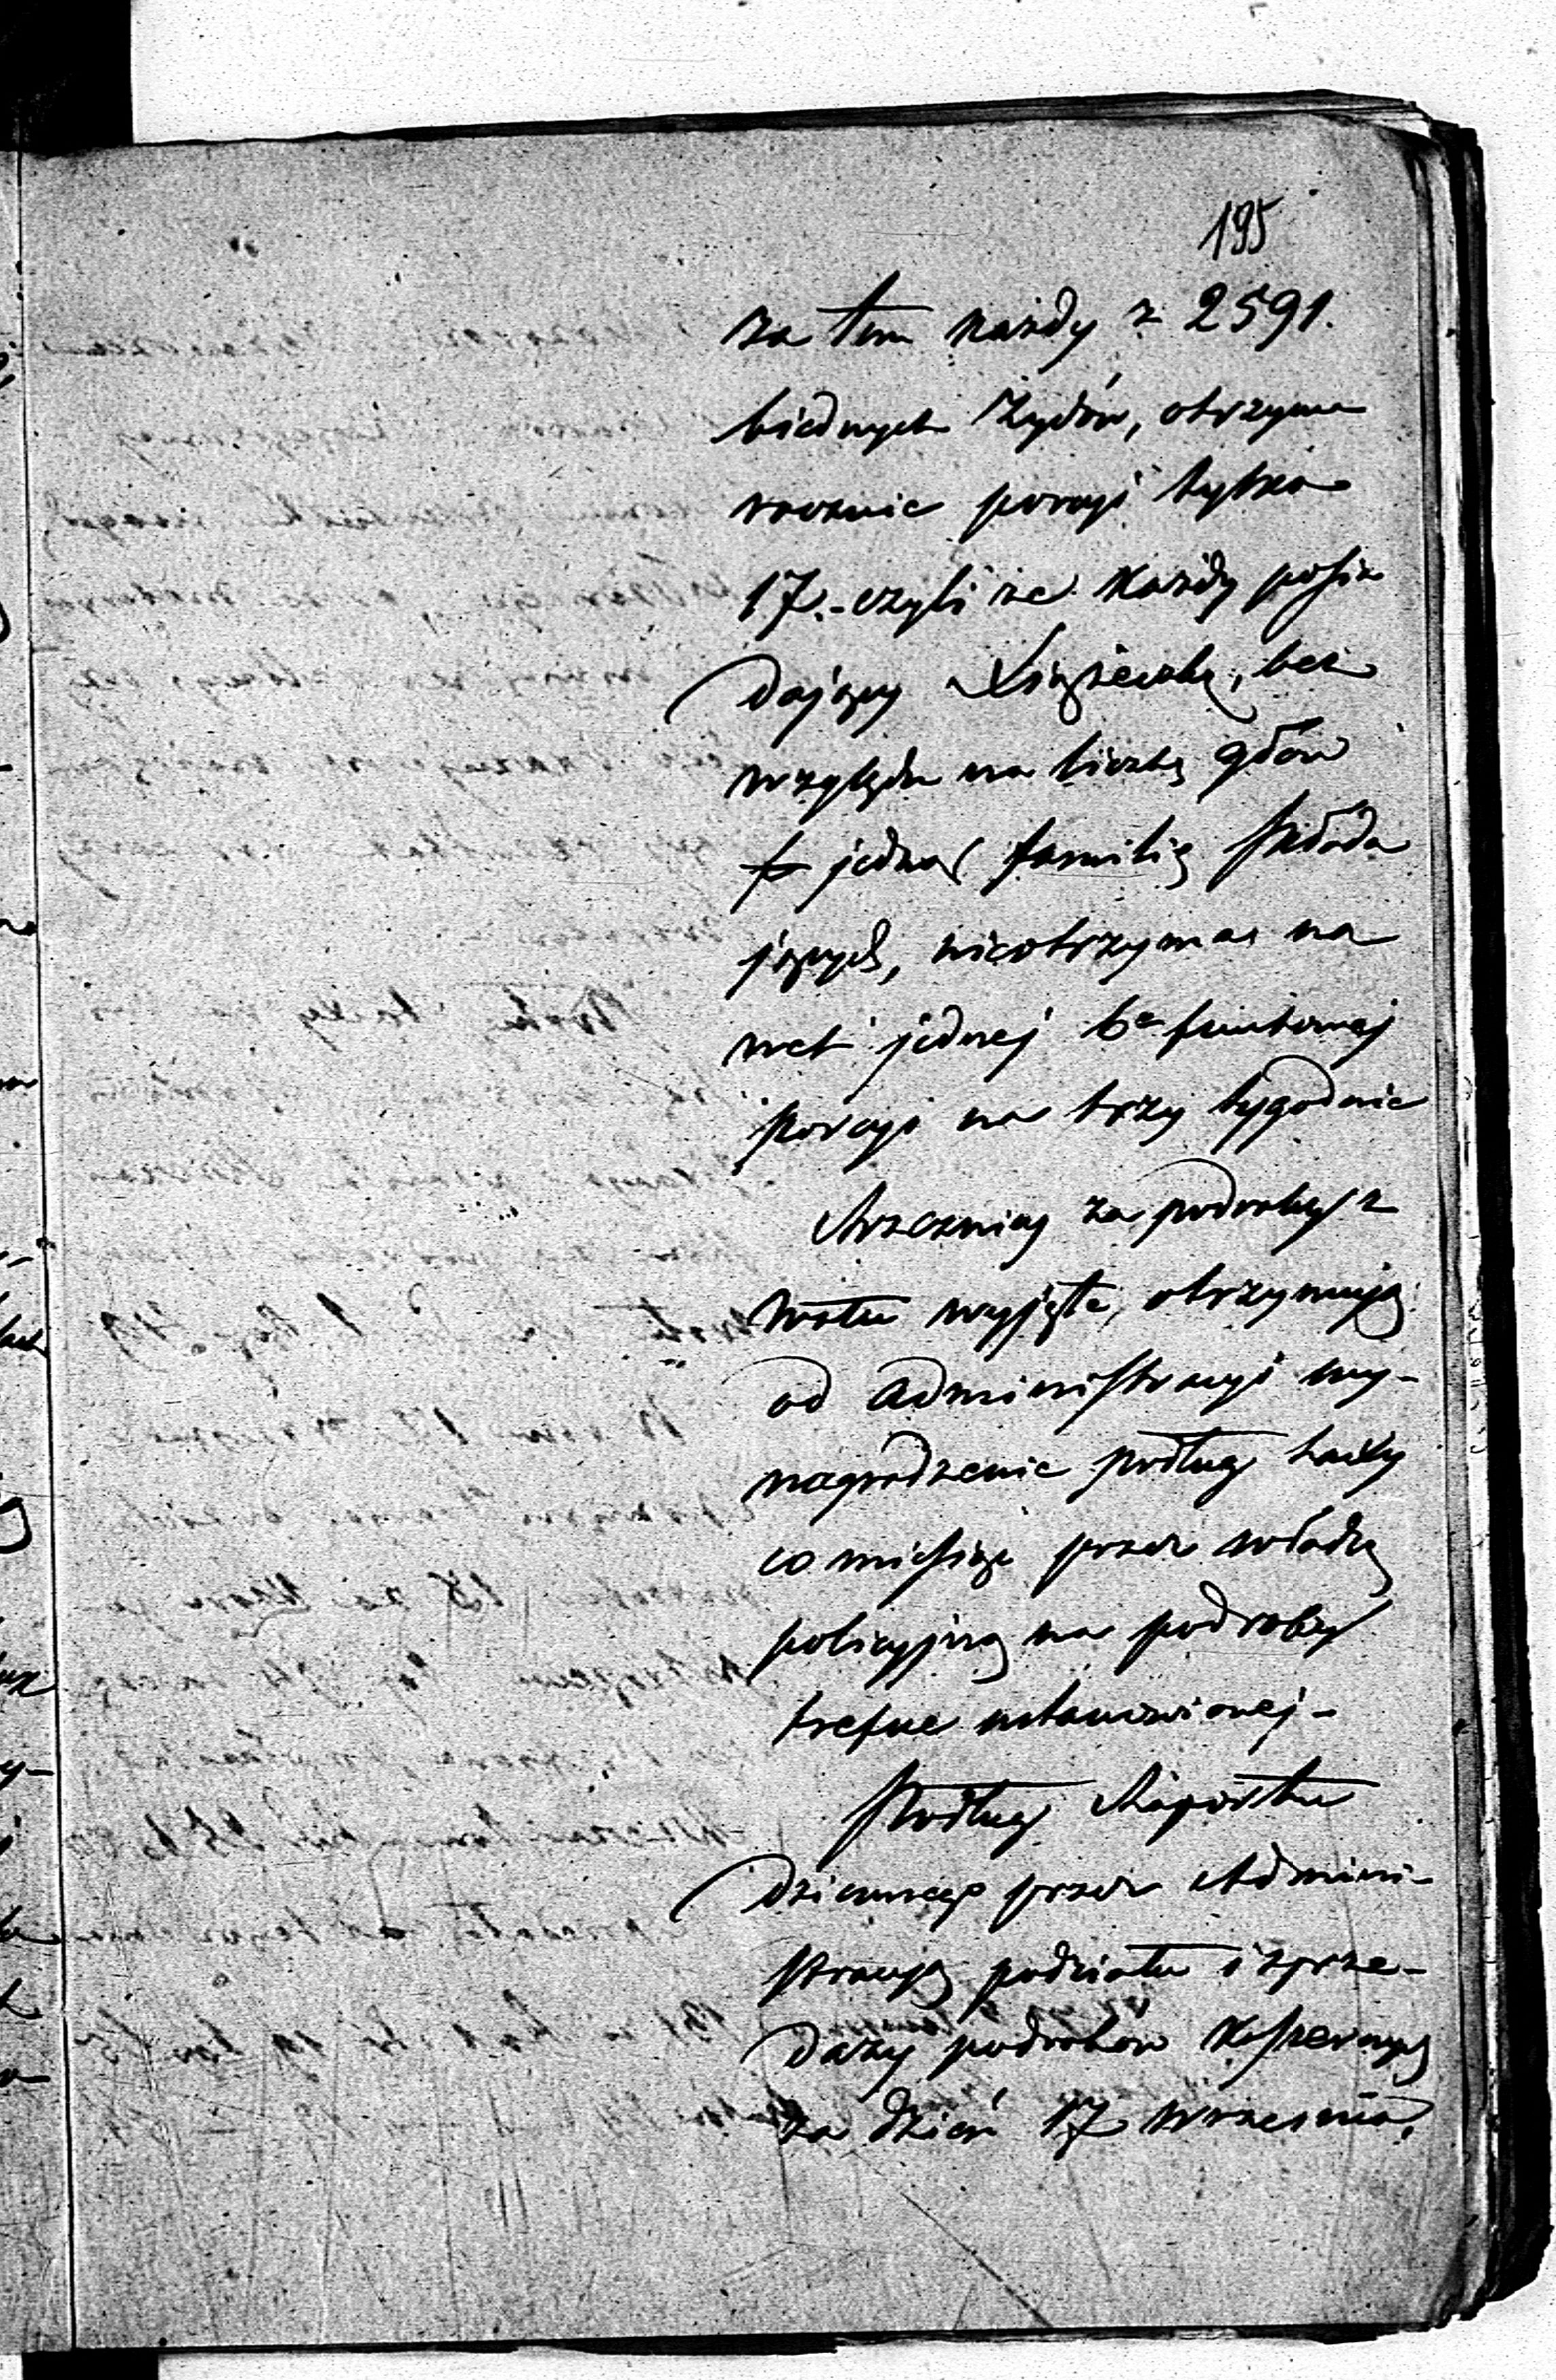 195
za tem każdy z 2591.
biednych Żydów, otrzyma
rocznie porcyi tylko
17.- czyli że każdy posia
dający Xiążeczkę, bez
względu na liczbę głów
jedną familię składa
jących, nieotrzyma na
wet jednej 6o funtowej
porcyi na trzy tygodnie
Rzeźnicy za podroby z
wołu wyjęte, otrzymują
od Administracyi wy-
nagrodzenie podług taxy
co miesiąc przez władzę
policyjną na podroby
trefne ustanowionej -
Podług Raportu
dziennego przez Admini-
stracyą podziału i sprze-
daży podrobów koszernych
za dzień 17 września,